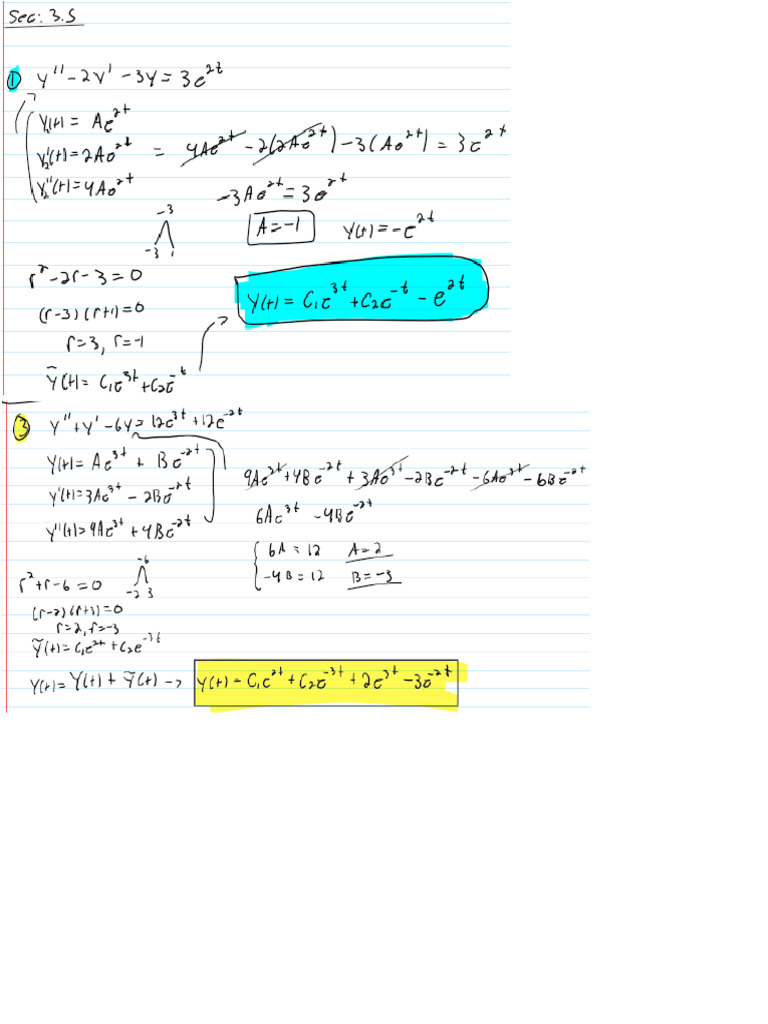 Sec: 3.5
① y'' - 2y' - 3y = 3e^{2t}
Y(t) = Ae^{2t}
Y'(t) = 2Ae^{2t} = 4Ae^{2t} - 2(2Ae^{2t}) - 3(Ae^{2t}) = 3e^{2t}
Y''(t) = 4Ae^{2t}
-3Ae^{2t} = 3e^{2t}
A = -1 Y(t) = -e^{2t}
-3
-3 1
r² - 2r - 3 = 0
(r-3)(r+1) = 0
r = 3, r = -1
ỹ(t) = C₁e^{3t} + C₂e^{-t}
Y(t) = C₁e^{3t} + C₂e^{-t} - e^{2t}
③ y'' + y' - 6y = 12e^{3t} + 12e^{-2t}
Y(t) = Ae^{3t} + Be^{-2t}
Y'(t) = 3Ae^{3t} - 2Be^{-2t}
Y''(t) = 9Ae^{3t} + 4Be^{-2t}
9Ae^{3t} + 4Be^{-2t} + 3Ae^{3t} - 2Be^{-2t} - 6Ae^{3t} - 6Be^{-2t}
6Ae^{3t} - 4Be^{-2t}
6A = 12 A = 2
-4B = 12 B = -3
-6
-2 3
r² + r - 6 = 0
(r-2)(r+3) = 0
r = 2, r = -3
ỹ(t) = C₁e^{2t} + C₂e^{-3t}
y(t) = Y(t) + ỹ(t) -> y(t) = C₁e^{2t} + C₂e^{-3t} + 2e^{3t} - 3e^{-2t}